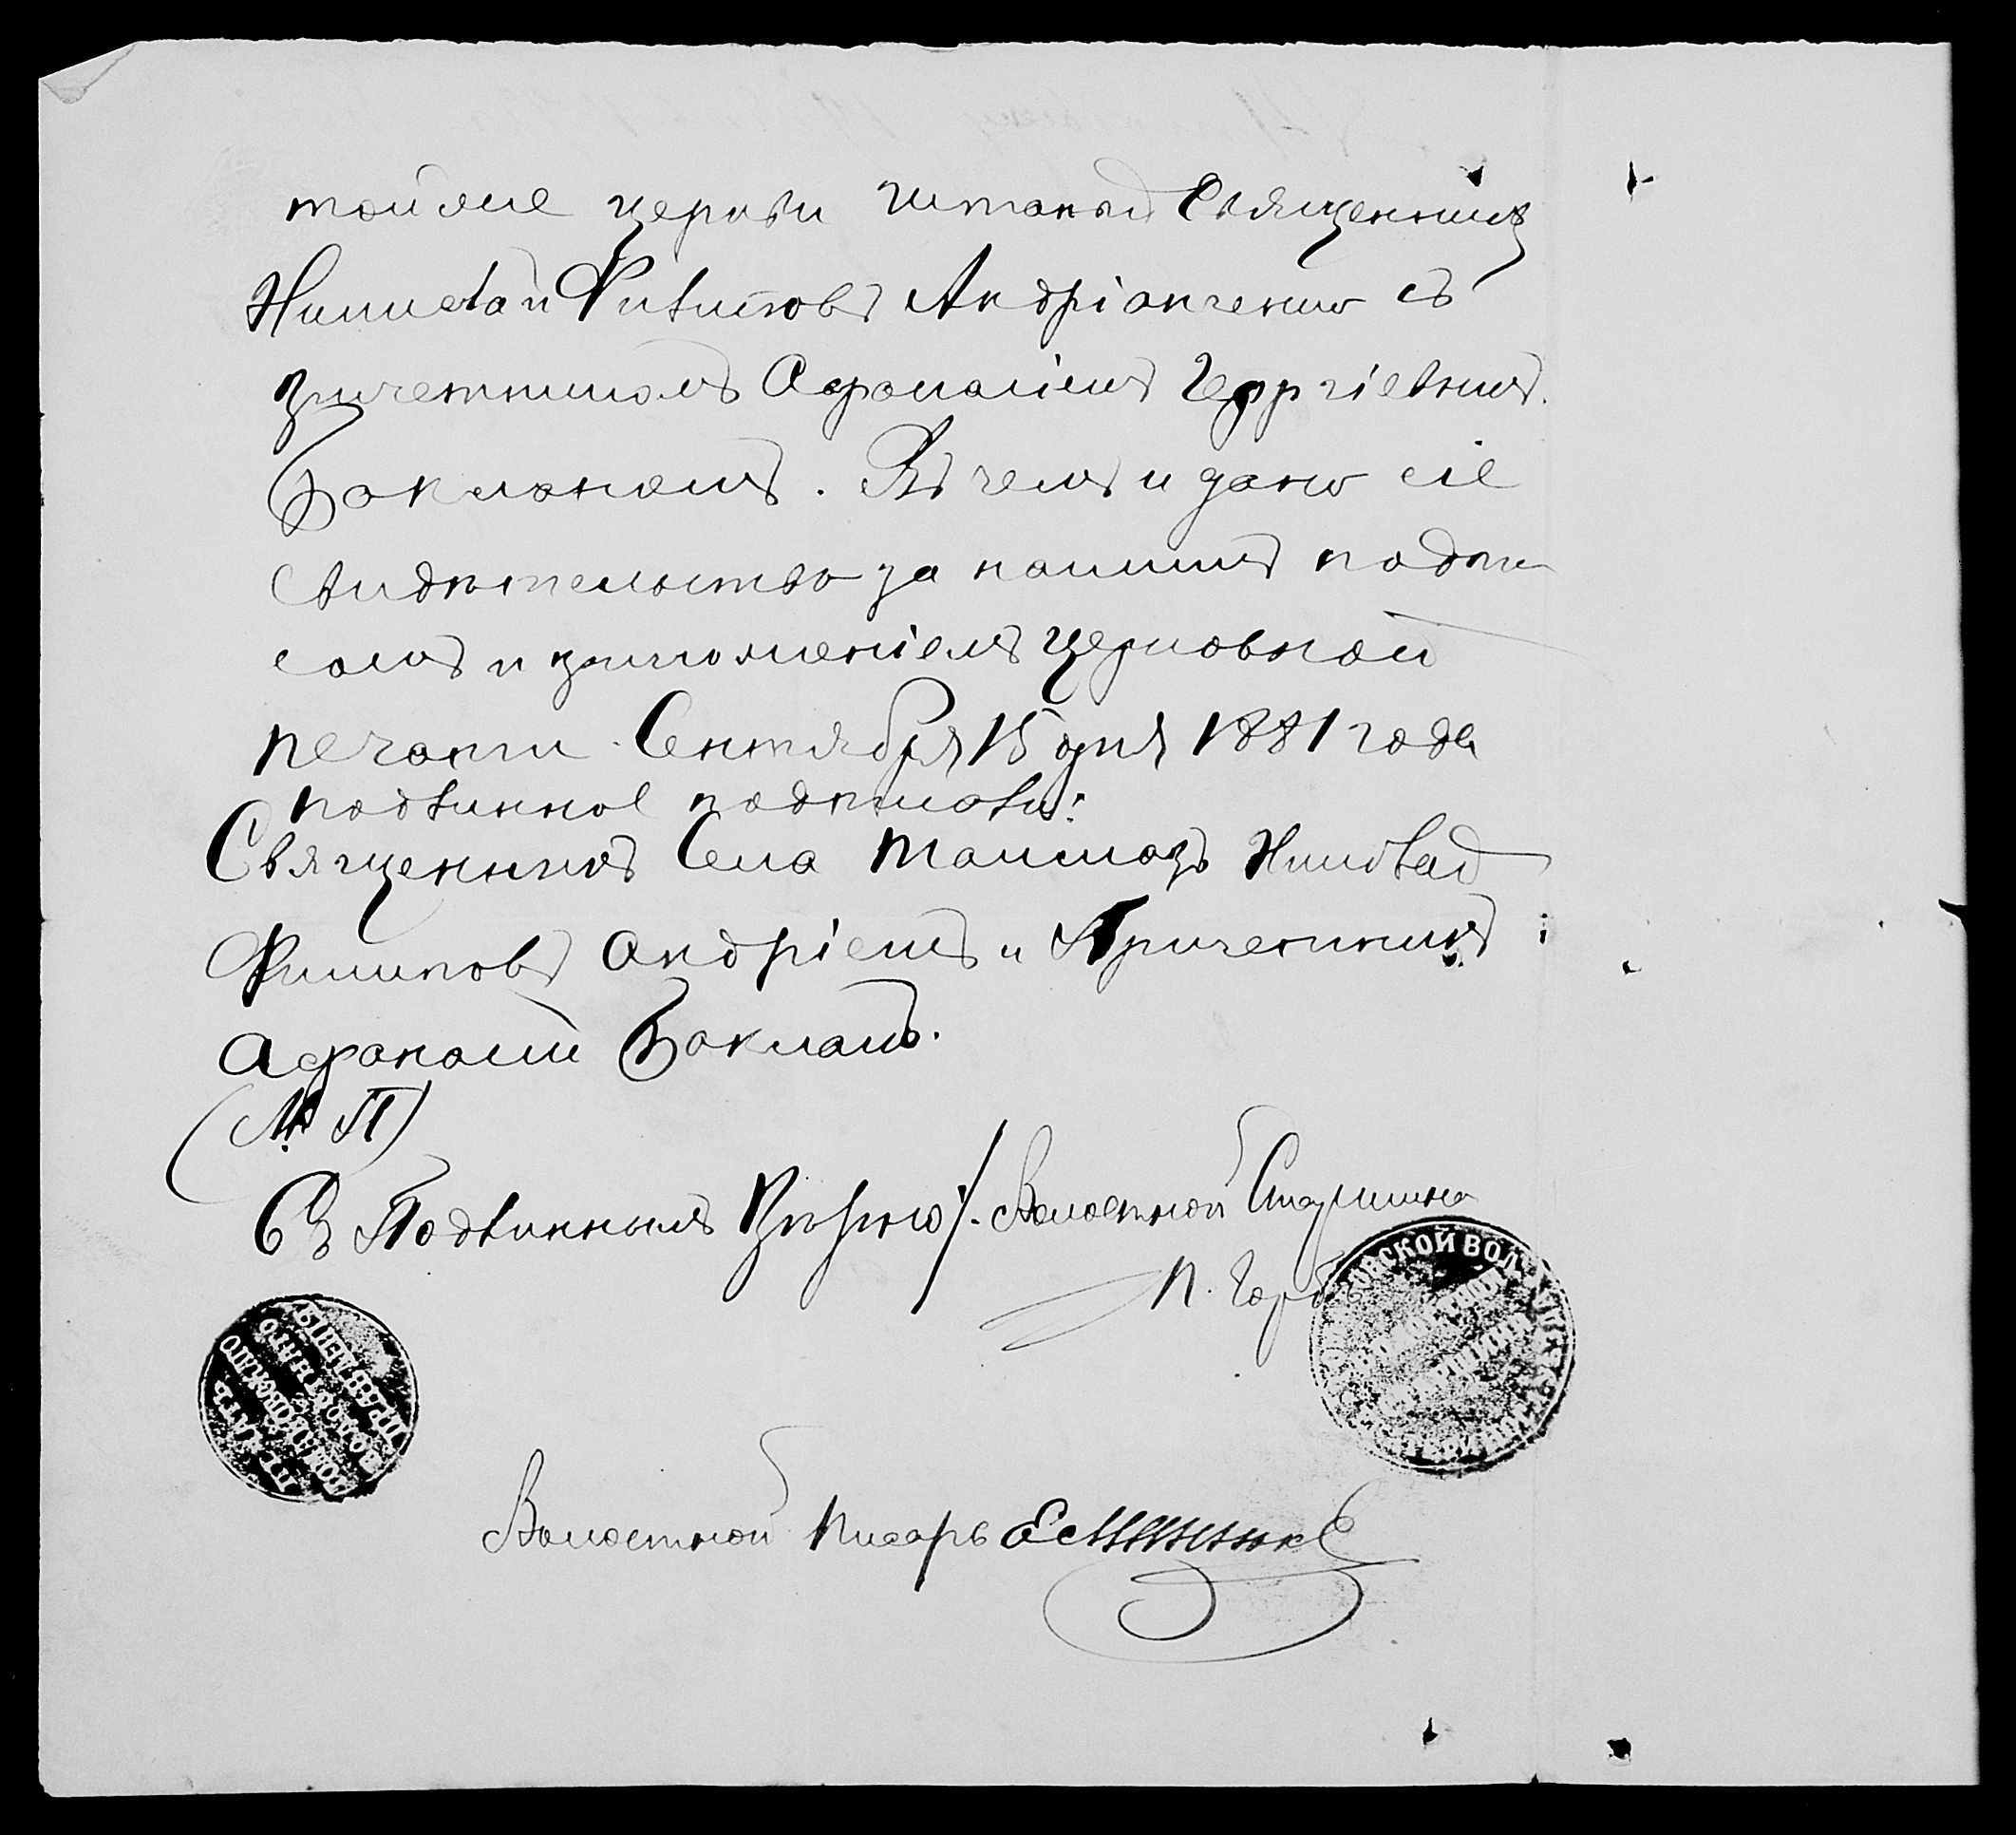 той же церкви штаный Священникъ
Николай Филиповъ Андріанченко съ
причетникомъ Афонасіемъ Георгіевымъ
Бакланомъ. Въ чемъ и дано сіе
свидѣтельство за нашимъ подпи
сомъ и приложеніемъ церковной
печати. Сентября 15 дня 1881 года
подлинное подписали:
Священникъ Села Николай
Филиповъ Андріевъ и Причетникъ
Афанасій Бакланъ.
(М. П)
Съ Подлиннымъ Вѣрно:/. Волостной Старшина
П. Горбъ
ВОЛОСТНОГО
ПРАВЛЕНІЯ
Волостной Писарь